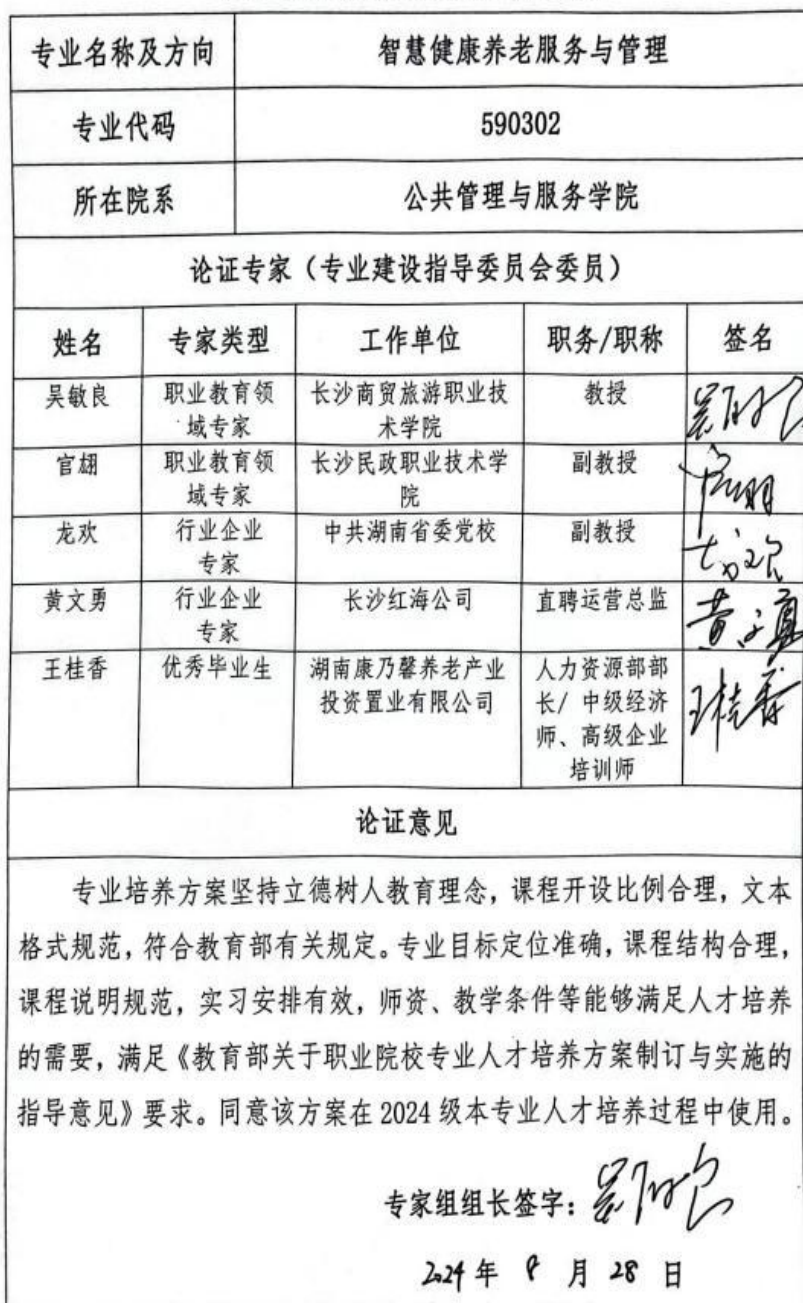 专业名称及方向 智慧健康养老服务与管理
专业代码 590302
所在院系 公共管理与服务学院
论证专家（专业建设指导委员会委员）
姓名 专家类型 工作单位 职务/职称 签名
吴敏良 职业教育领域专家 长沙商贸旅游职业技术学院 教授 吴敏良
官翃 职业教育领域专家 长沙民政职业技术学院 副教授
龙欢 行业企业专家 中共湖南省委党校 副教授 龙欢
黄文勇 行业企业专家 长沙红海公司 直聘运营总监 黄文勇
王桂香 优秀毕业生 湖南康乃馨养老产业投资置业有限公司 人力资源部部长/ 中级经济师、高级企业培训师 王桂香
论证意见
专业培养方案坚持立德树人教育理念，课程开设比例合理，文本
格式规范，符合教育部有关规定。专业目标定位准确，课程结构合理，
课程说明规范，实习安排有效，师资、教学条件等能够满足人才培养
的需要，满足《教育部关于职业院校专业人才培养方案制订与实施的
指导意见》要求。同意该方案在 2024 级本专业人才培养过程中使用。
专家组组长签字：吴敏良
2024 年 8 月 28 日